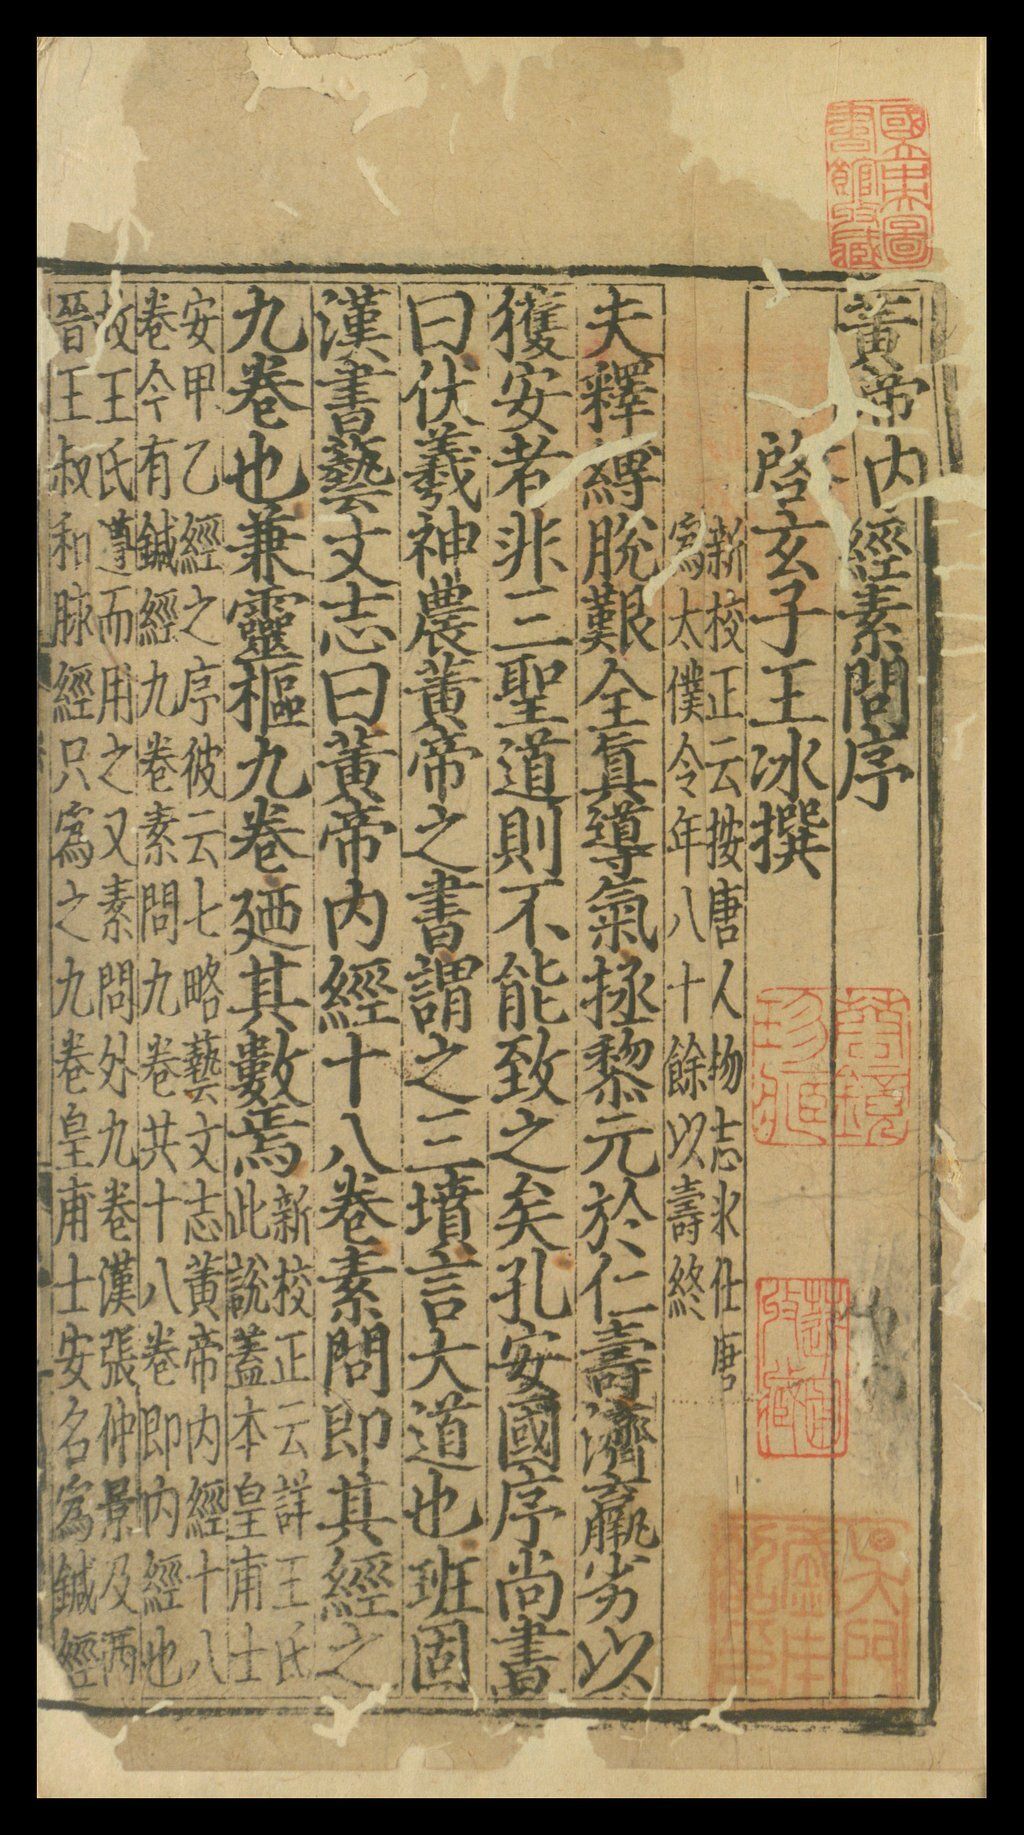 黃帝內經素問序
啓玄子王冰撰
新校正云按唐人物志冰仕唐
爲太僕令年八十餘以壽終
夫釋縛脫艱全眞導氣拯黎元於仁壽濟羸劣以
獲安者非三聖道則不能致之矣孔安國序尚書
曰伏羲神農黃帝之書謂之三墳言大道也班固
漢書藝文志曰黃帝內經十八卷素問即其經之
九卷也兼靈樞九卷廼其數焉
新校正云詳王氏
此說蓋本皇甫士
安甲乙經之序彼云七略藝文志黃帝內經十八
卷今有鍼經九卷素問九卷共十八卷即內經也
故王氏遵而用之又素問外九卷漢張仲景及西
晉王叔和脉經只爲之九卷皇甫士安名爲鍼經
國立中央圖
書館收藏